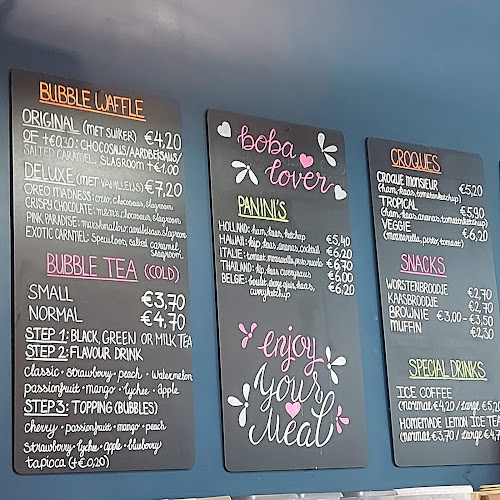 BUBBLE WAFFLE
ORIGINAL (MET SUIKER) €4,20
OF +€0,30: CHOCOSAUS/AARDBEISAUS/
SALTED CARAMEL, SLAGROOM +€1,00
DELUXE (MET VANILLEIJS) €7,20
OREO MADNESS: oreo, chocosaus, slagroom
CRISPY CHOCOLATE: m&m's, chocosaus, slagroom
PINK PARADISE: marshmallow, aardbeisaus, slagroom
EXOTIC CARAMEL: Speculoos, salted caramel,
slagroom
BUBBLE TEA (COLD)
SMALL €3,70
NORMAL €4,70
STEP 1: BLACK, GREEN OR MILK TEA
STEP 2: FLAVOUR DRINK
classic • strawberry • peach • watermelon
passionfruit • mango • lychee • apple
STEP 3: TOPPING (BUBBLES)
cherry • passionfruit • mango • peach
strawberry • lychee • apple • blueberry
tapioca (+€0,20)
boba
lover
PANINI'S
HOLLAND: ham, kaas, ketchup €5,40
HAWAII: kip, kaas, ananas, cocktail €6,20
ITALIE: tomaat, mozzarella, pesto, rucola €6,70
THAILAND: kip, kaas, currysaus €6,00
BELGIE: boulet, droge ajuin, kaas, €6,20
curryketchup
enjoy
Your
Meal
CROQUES
CROQUE MONSIEUR €5,20
(ham, kaas, tomatenketchup)
TROPICAL €5,90
(ham, kaas, ananas, tomatenketchup)
VEGGIE €6,20
(mozzarella, pesto, tomaat)
SNACKS
WORSTENBROODJE €2,70
KAASBROODJE €2,70
BROWNIE €3,00 - €3,50
MUFFIN €2,30
SPECIAL DRINKS
ICE COFFEE
(normal €4,20 / large €5,20
HOMEMADE LEMON ICE TEA
(normal €3,70 / large €4,7